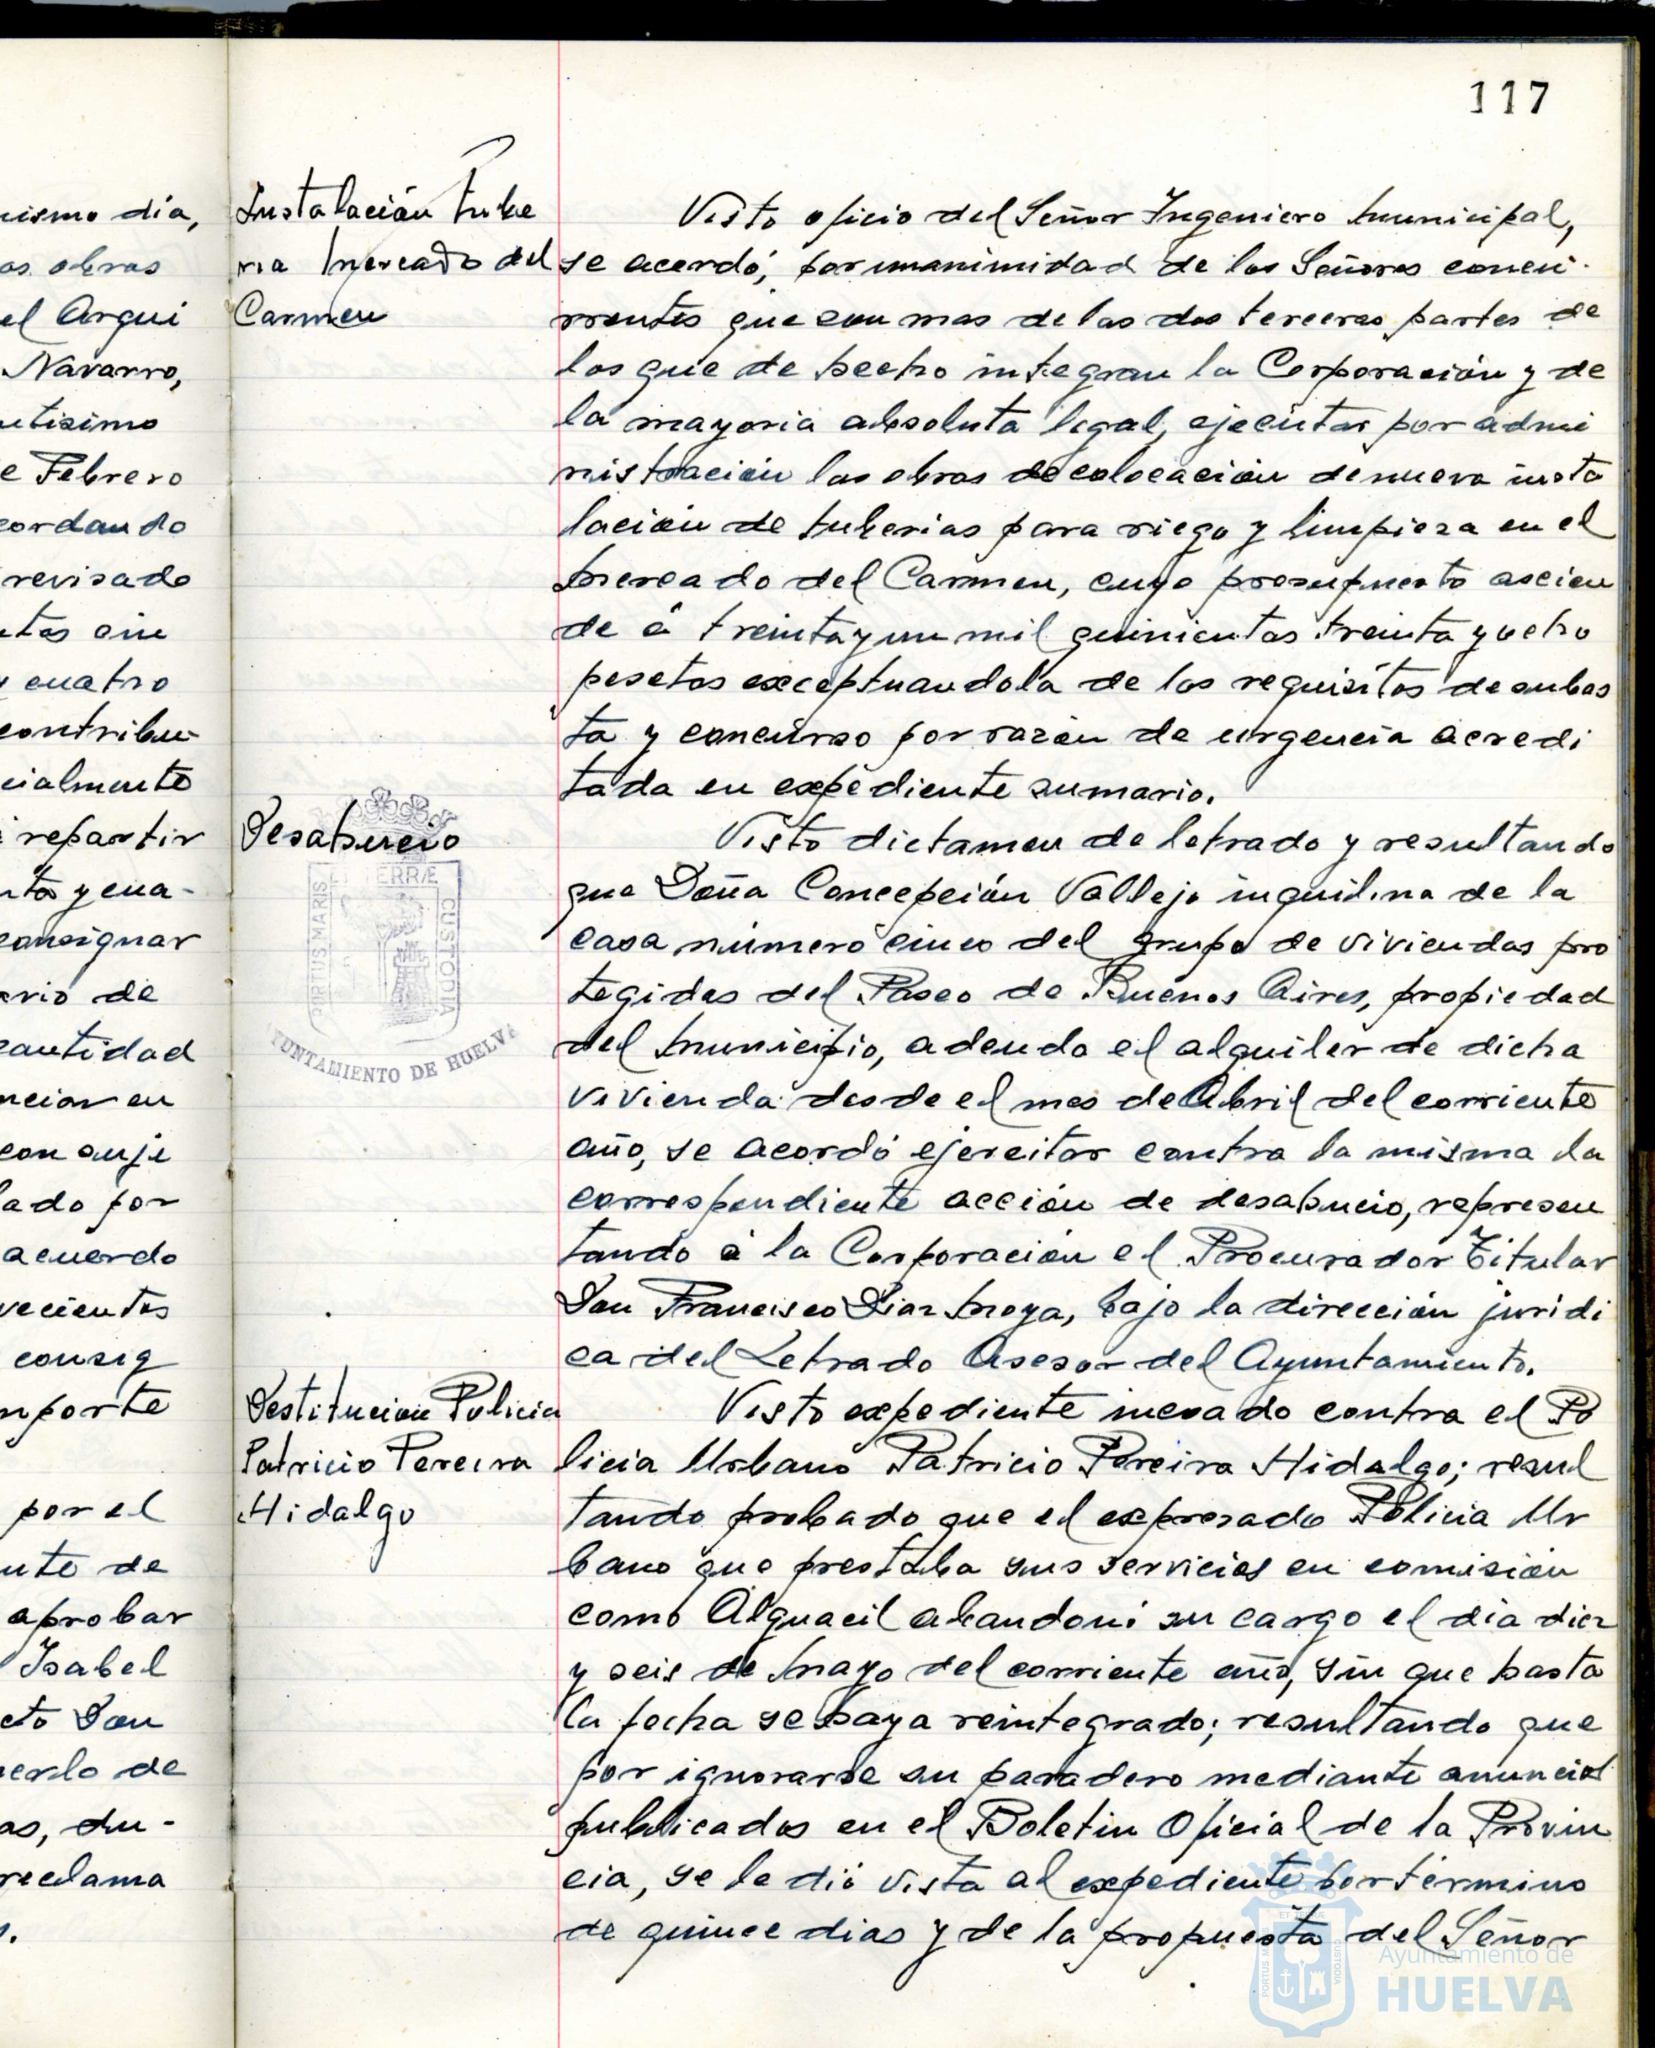 117
nismo día,
as obras
el Arqui
Navarro,
ntisimo
e Febrero
cordando
revisado
y cuatro
contribu-
cialmente
repartir
nta y cua-
consignar
ario de
cantidad
nciar en
con suje
lado por
acuerdo
vecientas
consig
mporte
por el
nte de
aprobar
Isabel
cto Don
nerlo de
as, du-
reclama
s.
Instalación tube
ria Mercado del
Carmen
Visto oficio del Señor Ingeniero Municipal,
se acordó, por unanimidad de los Señores concu-
rrentes que son mas de las dos terceras partes de
los que de hecho integran la Corporación y de
la mayoria absoluta legal, ejecutar por admi
nistración las obras de colocación de nueva insta
lación de tuberias para riego y limpieza en el
Mercado del Carmen, cuyo presupuesto ascien
de á treinta y un mil quinientas treinta y ocho
pesetas exceptuandola de los requisitos de subas
ta y concurso por razón de urgencia acredi
tada en expediente sumario.
Desahucio
Visto dictamen de letrado y resultando
que Doña Concepción Vallejo inquilina de la
casa número cinco del grupo de viviendas pro
tegidas del Paseo de Buenos Aires, propiedad
del Municipio, adeuda el alquiler de dicha
vivienda desde el mes de Abril del corriente
año, se acordó ejercitar contra la misma la
correspondiente acción de desahucio, represen
tando á la Corporación el Procurador Titular
Don Francisco Diaz Moya, bajo la dirección juridi
ca del Letrado Asesor del Ayuntamiento.
Destitucion Policia
Patricio Pereira
Hidalgo
Visto expediente incoado contra el Po
licia Urbano Patricio Pereira Hidalgo; resul
tando probado que el expresado Policia Ur
bano que prestaba sus servicios en comisión
como Alguacil abandonó su cargo el día diez
y seis de Mayo del corriente año, sin que hasta
la fecha se haya reintegrado; resultando que
por ignorarse su paradero mediante anuncios
publicados en el Boletin Oficial de la Provin
cia, se le dió vista al expediente por término
de quince dias y de la propuesta del Señor
ET TERRÆ
PORTUS MARIS
CUSTODIA
YUNTAMIENTO DE HUELVA
Ayuntamiento de
HUELVA